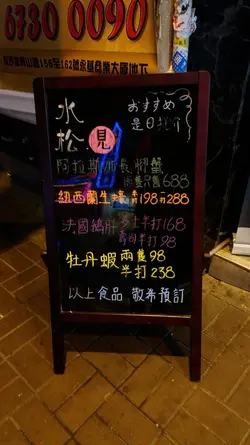 6730 0090
156至162號
商業大廈地下
水松見
おすすめ
是日推介
阿拉斯加長腳蟹
688
紐西蘭生蠔 198 288
法國鵝肝 多士半打168
壽司半打98
牡丹蝦 兩隻98
半打238
以上食品 敬希預訂